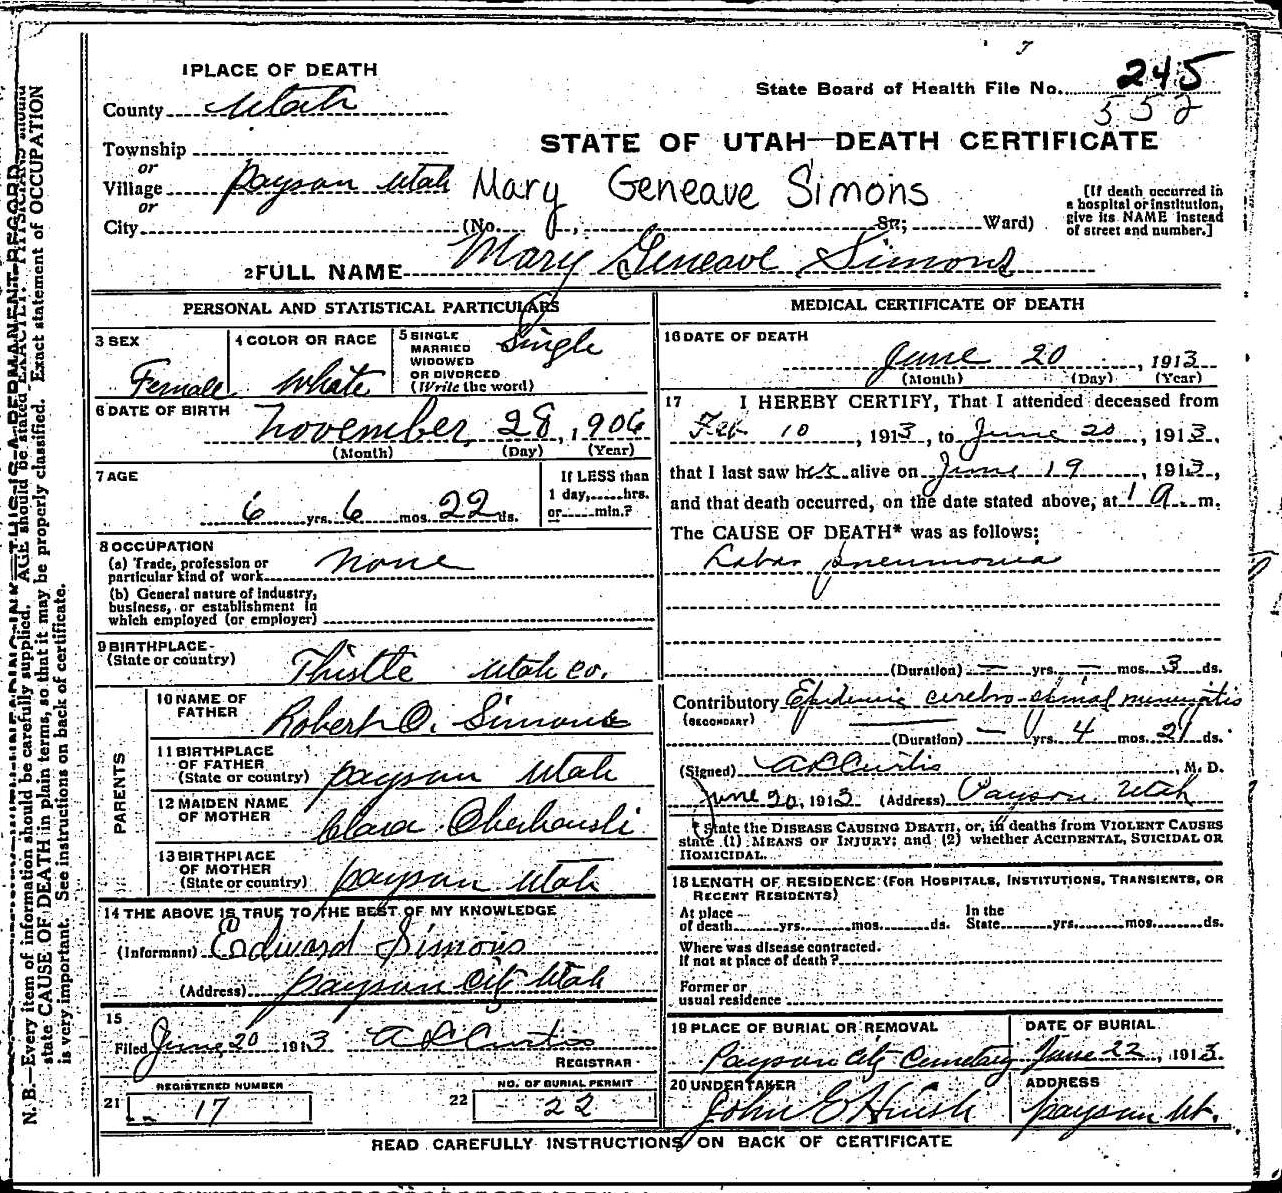 1 PLACE OF DEATH
County Utah
Township
or
Village Payson Utah
or
City (No. St; Ward)
State Board of Health File No. 245
552
STATE OF UTAH—DEATH CERTIFICATE
Mary Geneave Simons
[If death occurred in a hospital or institution, give its NAME instead of street and number.]
2 FULL NAME Mary Geneave Simons
PERSONAL AND STATISTICAL PARTICULARS
3 SEX
Female
4 COLOR OR RACE
White
5 SINGLE MARRIED WIDOWED OR DIVORCED (Write the word)
Single
6 DATE OF BIRTH
November 28, 1906
(Month) (Day) (Year)
7 AGE
6 yrs. 6 mos. 22 ds.
If LESS than 1 day, hrs. or min.?
8 OCCUPATION
(a) Trade, profession or particular kind of work None
(b) General nature of industry, business, or establishment in which employed (or employer)
9 BIRTHPLACE
(State or country) Thistle Utah Co.
PARENTS
10 NAME OF FATHER Robert O. Simons
11 BIRTHPLACE OF FATHER (State or country) Payson Utah
12 MAIDEN NAME OF MOTHER Clara
13 BIRTHPLACE OF MOTHER (State or country) Payson Utah
14 THE ABOVE IS TRUE TO THE BEST OF MY KNOWLEDGE
(Informant) Edward Simons
(Address) Payson City Utah
15
Filed June 20 1913 A L Curtis
REGISTRAR
REGISTERED NUMBER
21 17
NO. OF BURIAL PERMIT
22 22
MEDICAL CERTIFICATE OF DEATH
16 DATE OF DEATH
June 20, 1913
(Month) (Day) (Year)
17 I HEREBY CERTIFY, That I attended deceased from
Feb 10, 1913, to June 20, 1913,
that I last saw her alive on June 19, 1913,
and that death occurred, on the date stated above, at 1 a. m.
The CAUSE OF DEATH* was as follows:
Lobar pneumonia
(Duration) — yrs. — mos. 3 ds.
Contributory Epidemic cerebro-spinal meningitis
(SECONDARY)
(Duration) — yrs. 4 mos. 21 ds.
(Signed) A L Curtis, M. D.
June 20, 1913 (Address) Payson, Utah
* State the DISEASE CAUSING DEATH, or, in deaths from VIOLENT CAUSES
state (1) MEANS OF INJURY; and (2) whether ACCIDENTAL, SUICIDAL OR
HOMICIDAL.
18 LENGTH OF RESIDENCE (FOR HOSPITALS, INSTITUTIONS, TRANSIENTS, OR
RECENT RESIDENTS)
At place of death yrs. mos. ds. In the State yrs. mos. ds.
Where was disease contracted.
If not at place of death?
Former or
usual residence
19 PLACE OF BURIAL OR REMOVAL
Payson City Cemetary
DATE OF BURIAL
June 22, 1913.
20 UNDERTAKER
John E
ADDRESS
Payson Ut.
READ CAREFULLY INSTRUCTIONS ON BACK OF CERTIFICATE
N. B.—Every item of information should be carefully supplied. AGE should be stated EXACTLY. PHYSICIANS should
state CAUSE OF DEATH in plain terms, so that it may be properly classified. Exact statement of OCCUPATION
is very important. See instructions on back of certificate.